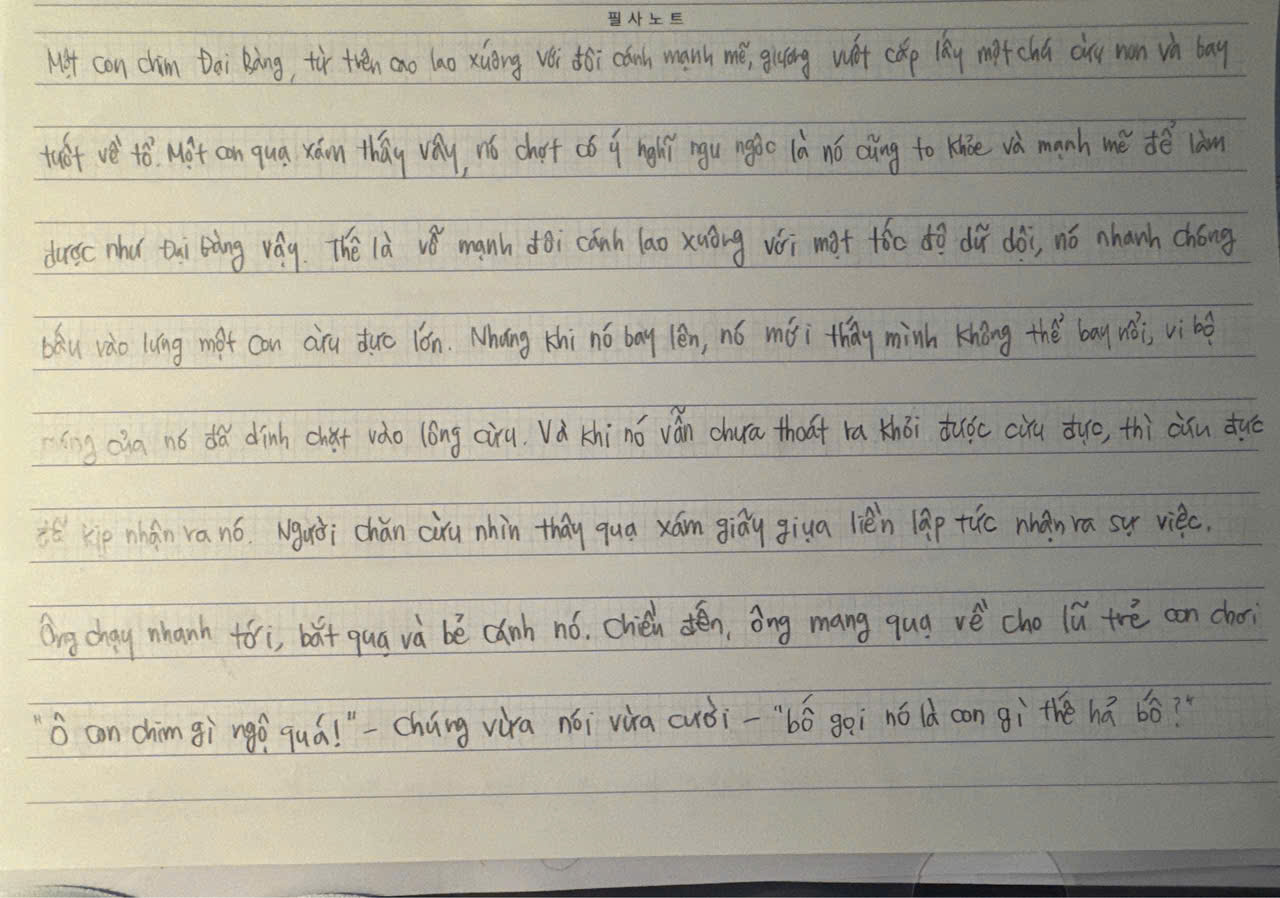 필사노트
Một con chim Đại Bàng, từ trên cao lao xuống với đôi cánh mạnh mẽ, giương vuốt cắp lấy một chú cừu non và bay
tuốt về tổ. Một con quạ xám thấy vậy, nó chợt có ý nghĩ ngu ngốc là nó cũng to khỏe và mạnh mẽ để làm
được như Đại Bàng vậy. Thế là vỗ mạnh đôi cánh lao xuống với một tốc độ dữ dội, nó nhanh chóng
bấu vào lưng một con cừu đực lớn. Nhưng khi nó bay lên, nó mới thấy mình không thể bay nổi, vì bộ
móng của nó đã dính chặt vào lông cừu. Và khi nó vẫn chưa thoát ra khỏi được cừu đực, thì cừu đực
kịp nhận ra nó. Người chăn cừu nhìn thấy quạ xám giãy giụa liền lập tức nhận ra sự việc.
Ông chạy nhanh tới, bắt quạ và bẻ cánh nó. Chiều đến, ông mang quạ về cho lũ trẻ con chơi
"Ô con chim gì ngộ quá!" - Chúng vừa nói vừa cười - "bố gọi nó là con gì thế hả bố?"